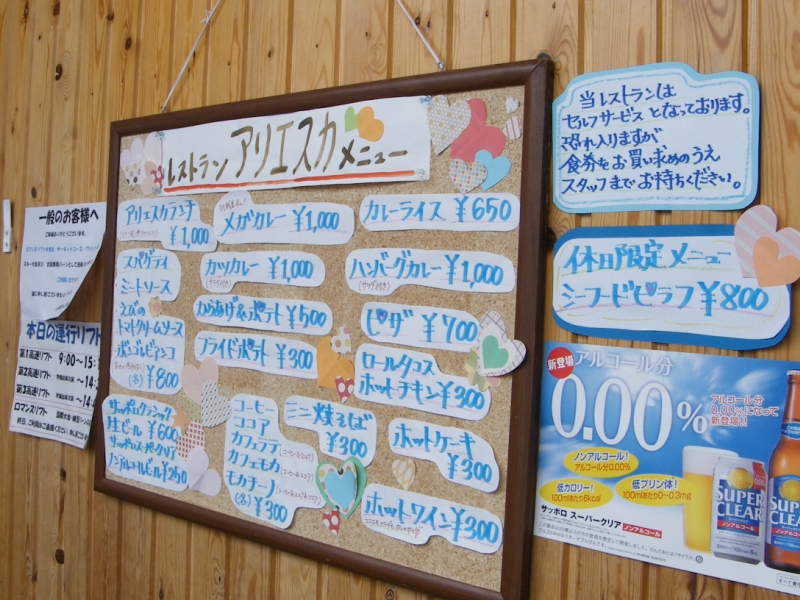 レストラン アリエスカ メニュー
アリエスカランチ
¥1,000
メガカレー ¥1,000
カレーライス ¥650
スパゲティ
ミートソース
えびの
トマトクリームソース
ボンゴレビアンコ
(各) ¥800
カツカレー ¥1,000
(サラダ付き)
ハンバーグカレー ¥1,000
(サラダ付き)
からあげ&ポテト ¥500
ピザ ¥700
フライドポテト ¥300
ロールタコス
ホットチキン ¥300
サッポロクラシック
生ビール ¥600
サッポロスーパークリア
ノンアルコールビール ¥250
コーヒー
ココア
カフェラテ
カフェモカ
モカチーノ
(各) ¥300
ミニ焼そば
¥300
ホットケーキ
¥300
ホットワイン ¥300
当レストランは
セルフサービスとなっております。
恐れ入りますが
食券をお買い求めのうえ
スタッフまでお持ちください。
休日限定メニュー
シーフードピラフ ¥800
一般のお客様へ
本日の運行リフト
第1高速リフト 9:00~15:
第2高速リフト ~14:
第3高速リフト ~14:
ロマンスリフト
新登場 アルコール分
0.00%
アルコール分
0.00%になって
新登場!!
ノンアルコール!
アルコール分0.00%
低カロリー!
100mlあたり6kcal
低プリン体!
100mlあたり0~0.3mg
サッポロ スーパークリア ノンアルコール
SUPER
CLEAR
SUPER
CLEAR